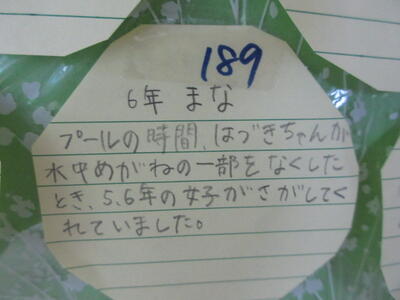 189
6年 まな
プールの時間、はづきちゃんが
水中めがねの一部をなくした
とき、5、6年の女子がさがしてく
れていました。